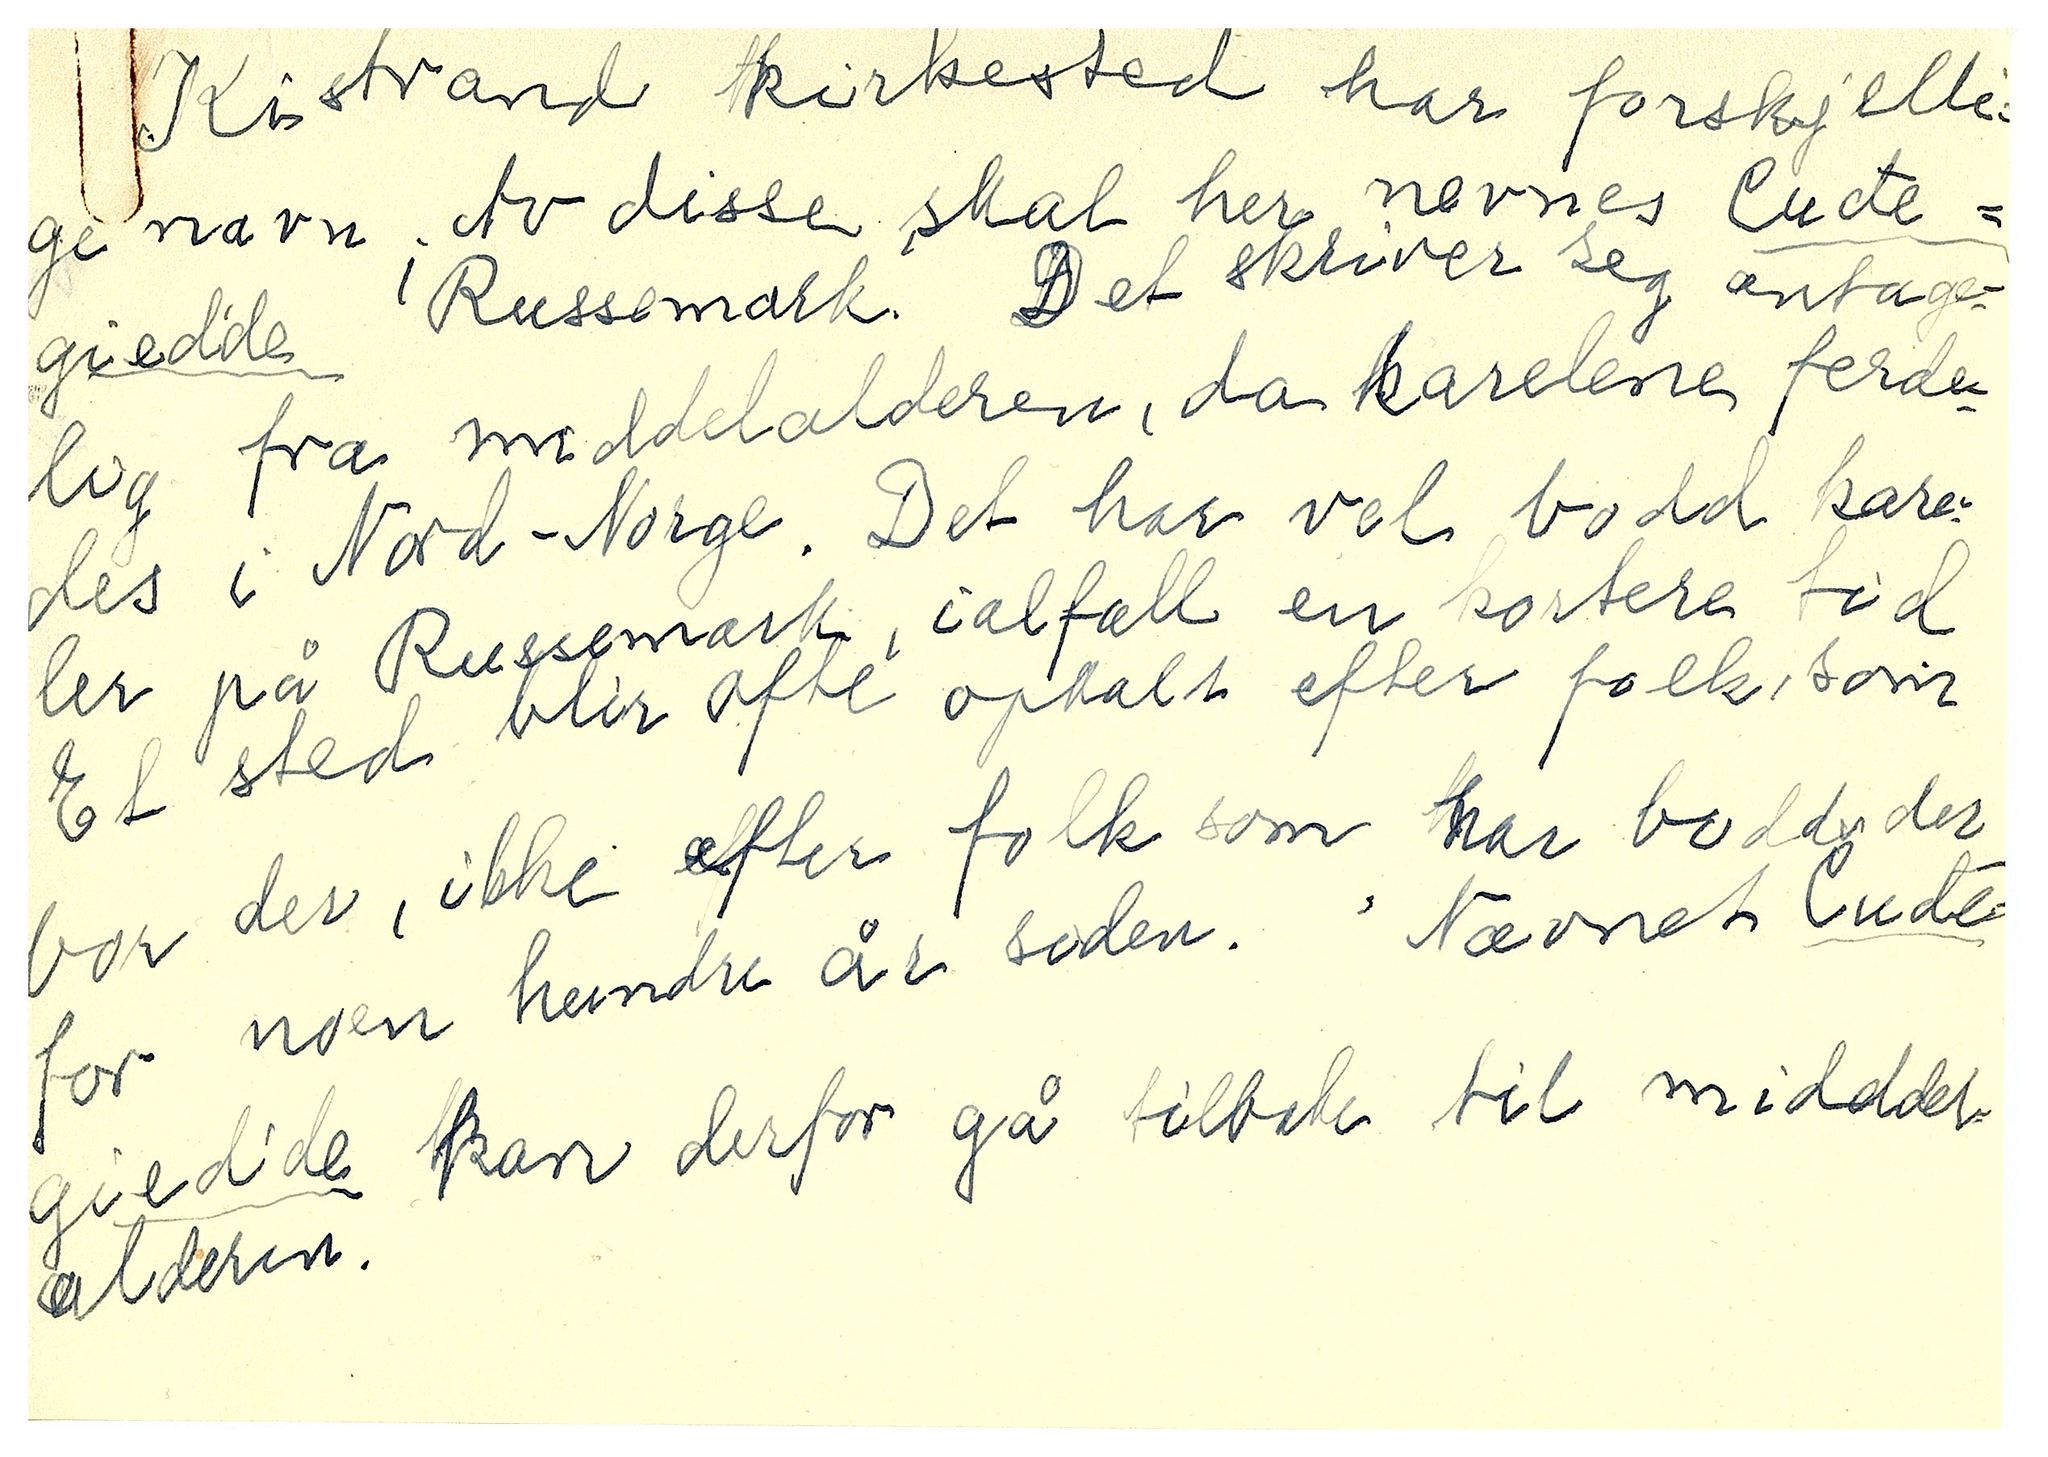 Kistrand kirkested har forskjelli-
ge navn. Av disse skal her nevnes Cude-
giedde, Russemark. Det skriver seg antage-
lig fra middelalderen, da karelene ferde-
des i Nord-Norge. Det har vel bodd kare-
ler på Russemark, ialfall en kortere tid
Et sted blir ofte opkalt efter folk, som
bor der, ikke efter folk som har bodd der
for noen hundre år siden. Nævnet Cude-
gied'de kan derfor gå tilbake til middel-
alderen.